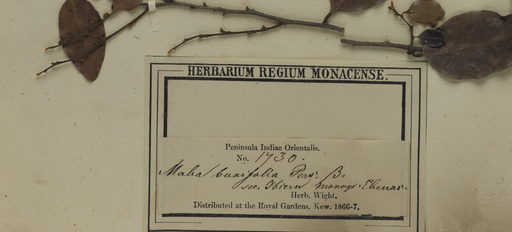 HERBARIUM REGIUM MONACENSE.
Peninsula Indiae Orientalis.
No. 1730.
Maba buxifolia Pers. β.
sec. Hiern monogr. Ebenac.
Herb. Wight.
Distributed at the Royal Gardens, Kew. 1866-7.